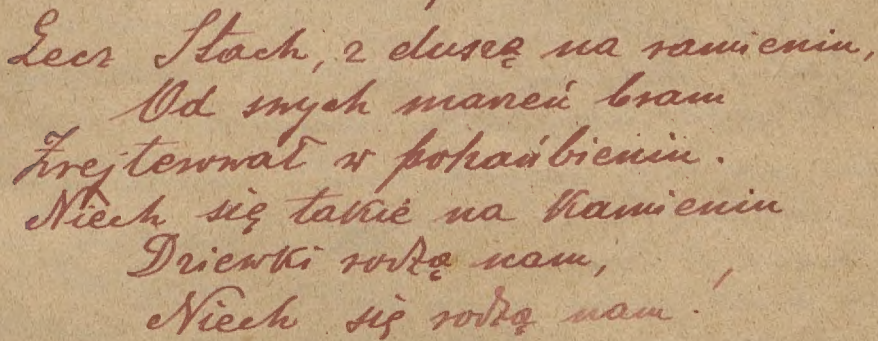 Lecz Stach, z duszą na ramieniu,
Od swych marzeń bram
Zrejterował w pohańbieniu.
Niech się takie na Kamieniu
Dziewki rodzą nam,
Niech się rodzą nam!